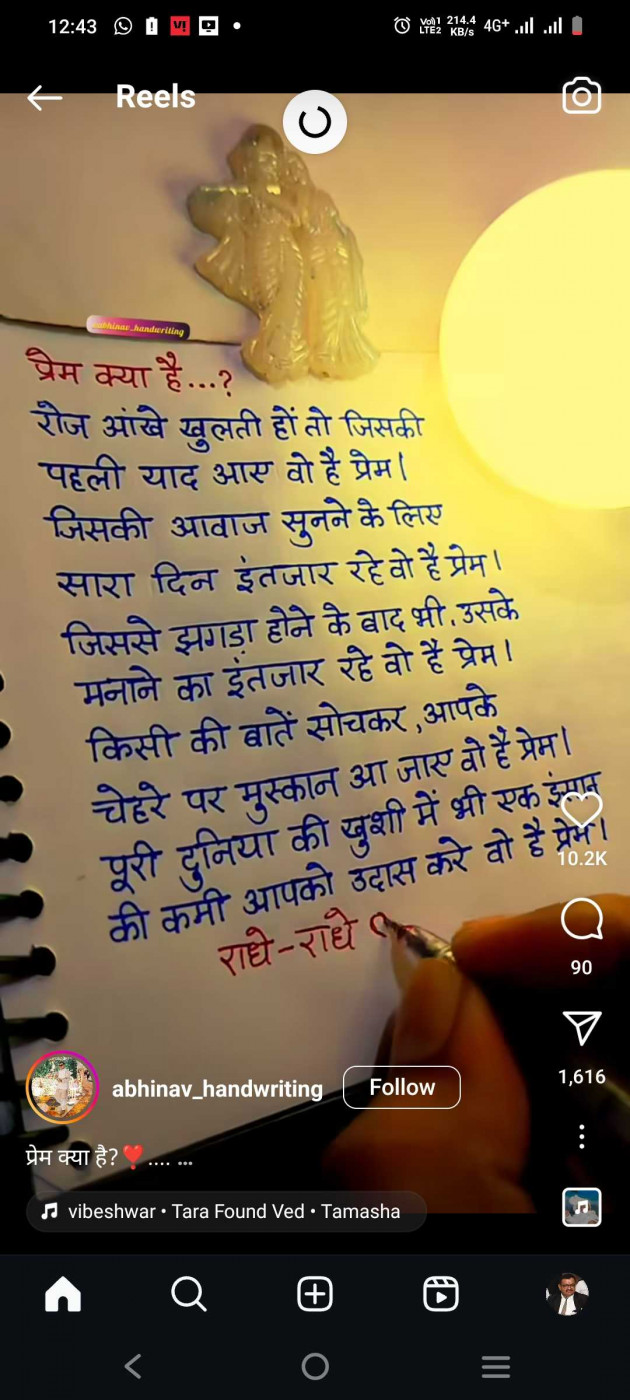 12:43
Vo))1 214.4 4G+
LTE2 KB/s
Reels
abhinav_handwriting
प्रेम क्या है...?
रोज आंखे खुलती हों तो जिसकी
पहली याद आए वो है प्रेम।
जिसकी आवाज सुनने के लिए
सारा दिन इंतजार रहे वो है प्रेम।
जिससे झगड़ा होने के बाद भी, उसके
मनाने का इंतजार रहे वो है प्रेम।
किसी की बातें सोचकर, आपके
चेहरे पर मुस्कान आ जाए वो है प्रेम।
पूरी दुनिया की खुशी में भी एक इंसान
की कमी आपको उदास करे वो है प्रेम।
राधे-राधे
10.2K
90
1,616
abhinav_handwriting
Follow
प्रेम क्या है? ❣️.... ...
vibeshwar • Tara Found Ved • Tamasha